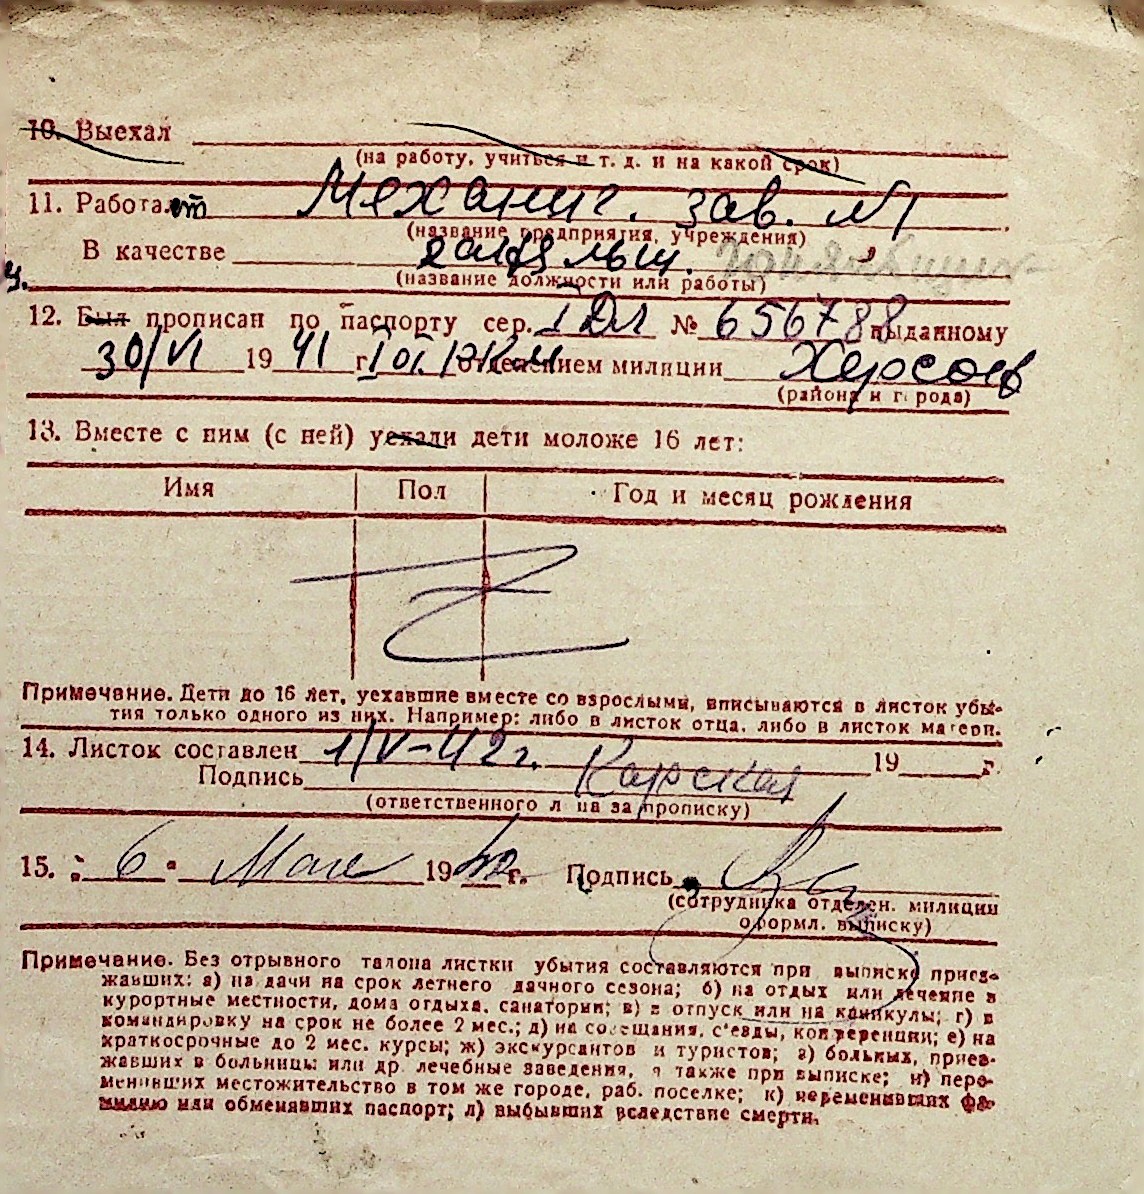 10. Выехал
(на работу, учиться и т. д. и на какой срок)
11. Работает Механич. зав. №1
(название предприятия, учреждения)
В качестве
(название должности или работы)
12. Был прописан по паспорту сер. I ДЛ № 656788 выданному
30/VI 1941 г. отделением милиции Херсон
(района и города)
13. Вместе с ним (с ней) уехали дети моложе 16 лет:
Имя Пол Год и месяц рождения
Примечание. Дети до 16 лет, уехавшие вместе со взрослыми, вписываются в листок убы-
тия только одного из них. Например: либо в листок отца, либо в листок матери.
14. Листок составлен 1/V-42 г. 19 г.
Подпись Карская
(ответственного лица за прописку)
15. „ 6 " Мая 1942 г. Подпись
(сотрудника отделен. милиции
оформл. выписку)
Примечание. Без отрывного талона листки убытия составляются при выписке приез-
жавших: а) на дачи на срок летнего дачного сезона; б) на отдых или лечение в
курортные местности, дома отдыха, санатории; в) в отпуск или на каникулы; г) в
командировку на срок не более 2 мес.; д) на совещания, с'езды, конференции; е) на
краткосрочные до 2 мес. курсы; ж) экскурсантов и туристов; з) больных, приез-
жавших в больницы или др. лечебные заведения, а также при выписке; и) пере-
менивших местожительство в том же городе, раб. поселке; к) переменивших фа-
милию или обменявших паспорт; л) выбывших вследствие смерти.